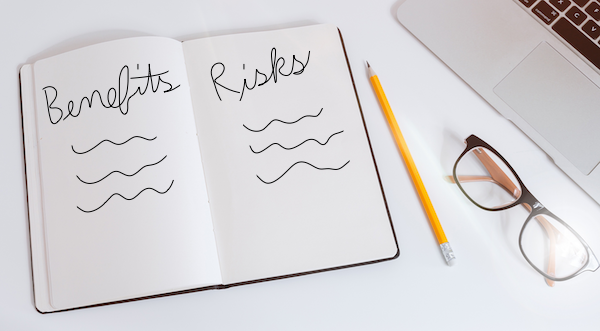 Benefits
Risks